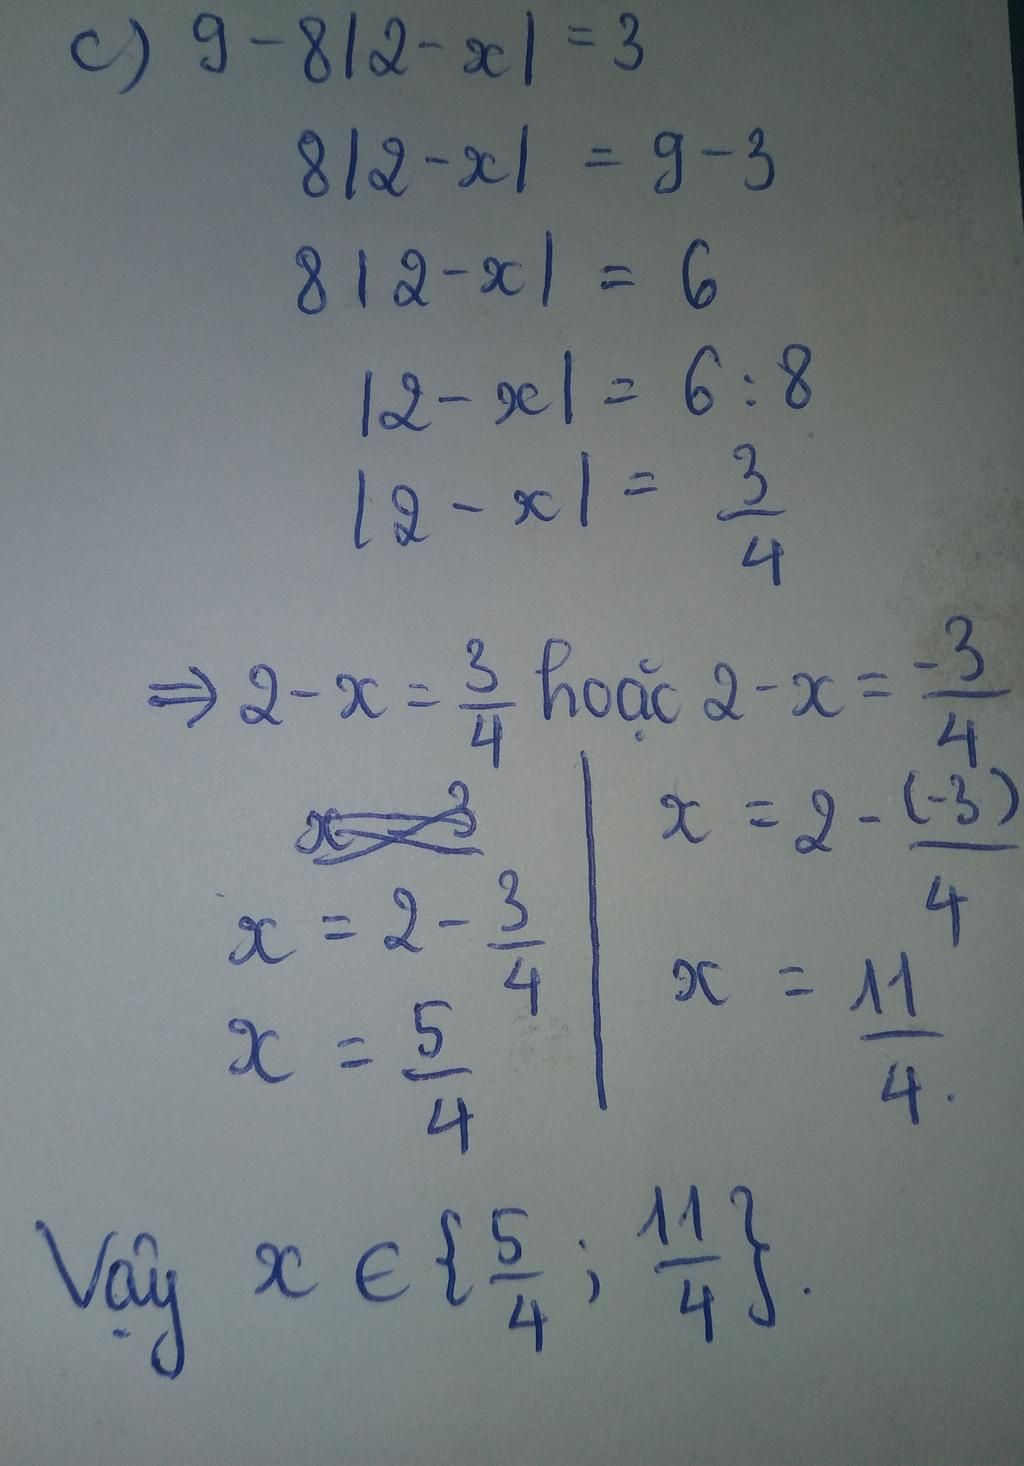 c) 9 - 8|2 - x| = 3
8|2 - x| = 9 - 3
8|2 - x| = 6
|2 - x| = 6 : 8
|2 - x| = 3/4
⇒ 2 - x = 3/4 hoặc 2 - x = -3/4
x = 2 - 3/4
x = 5/4
x = 2 - (-3)/4
x = 11/4.
Vậy x ∈ {5/4 ; 11/4}.